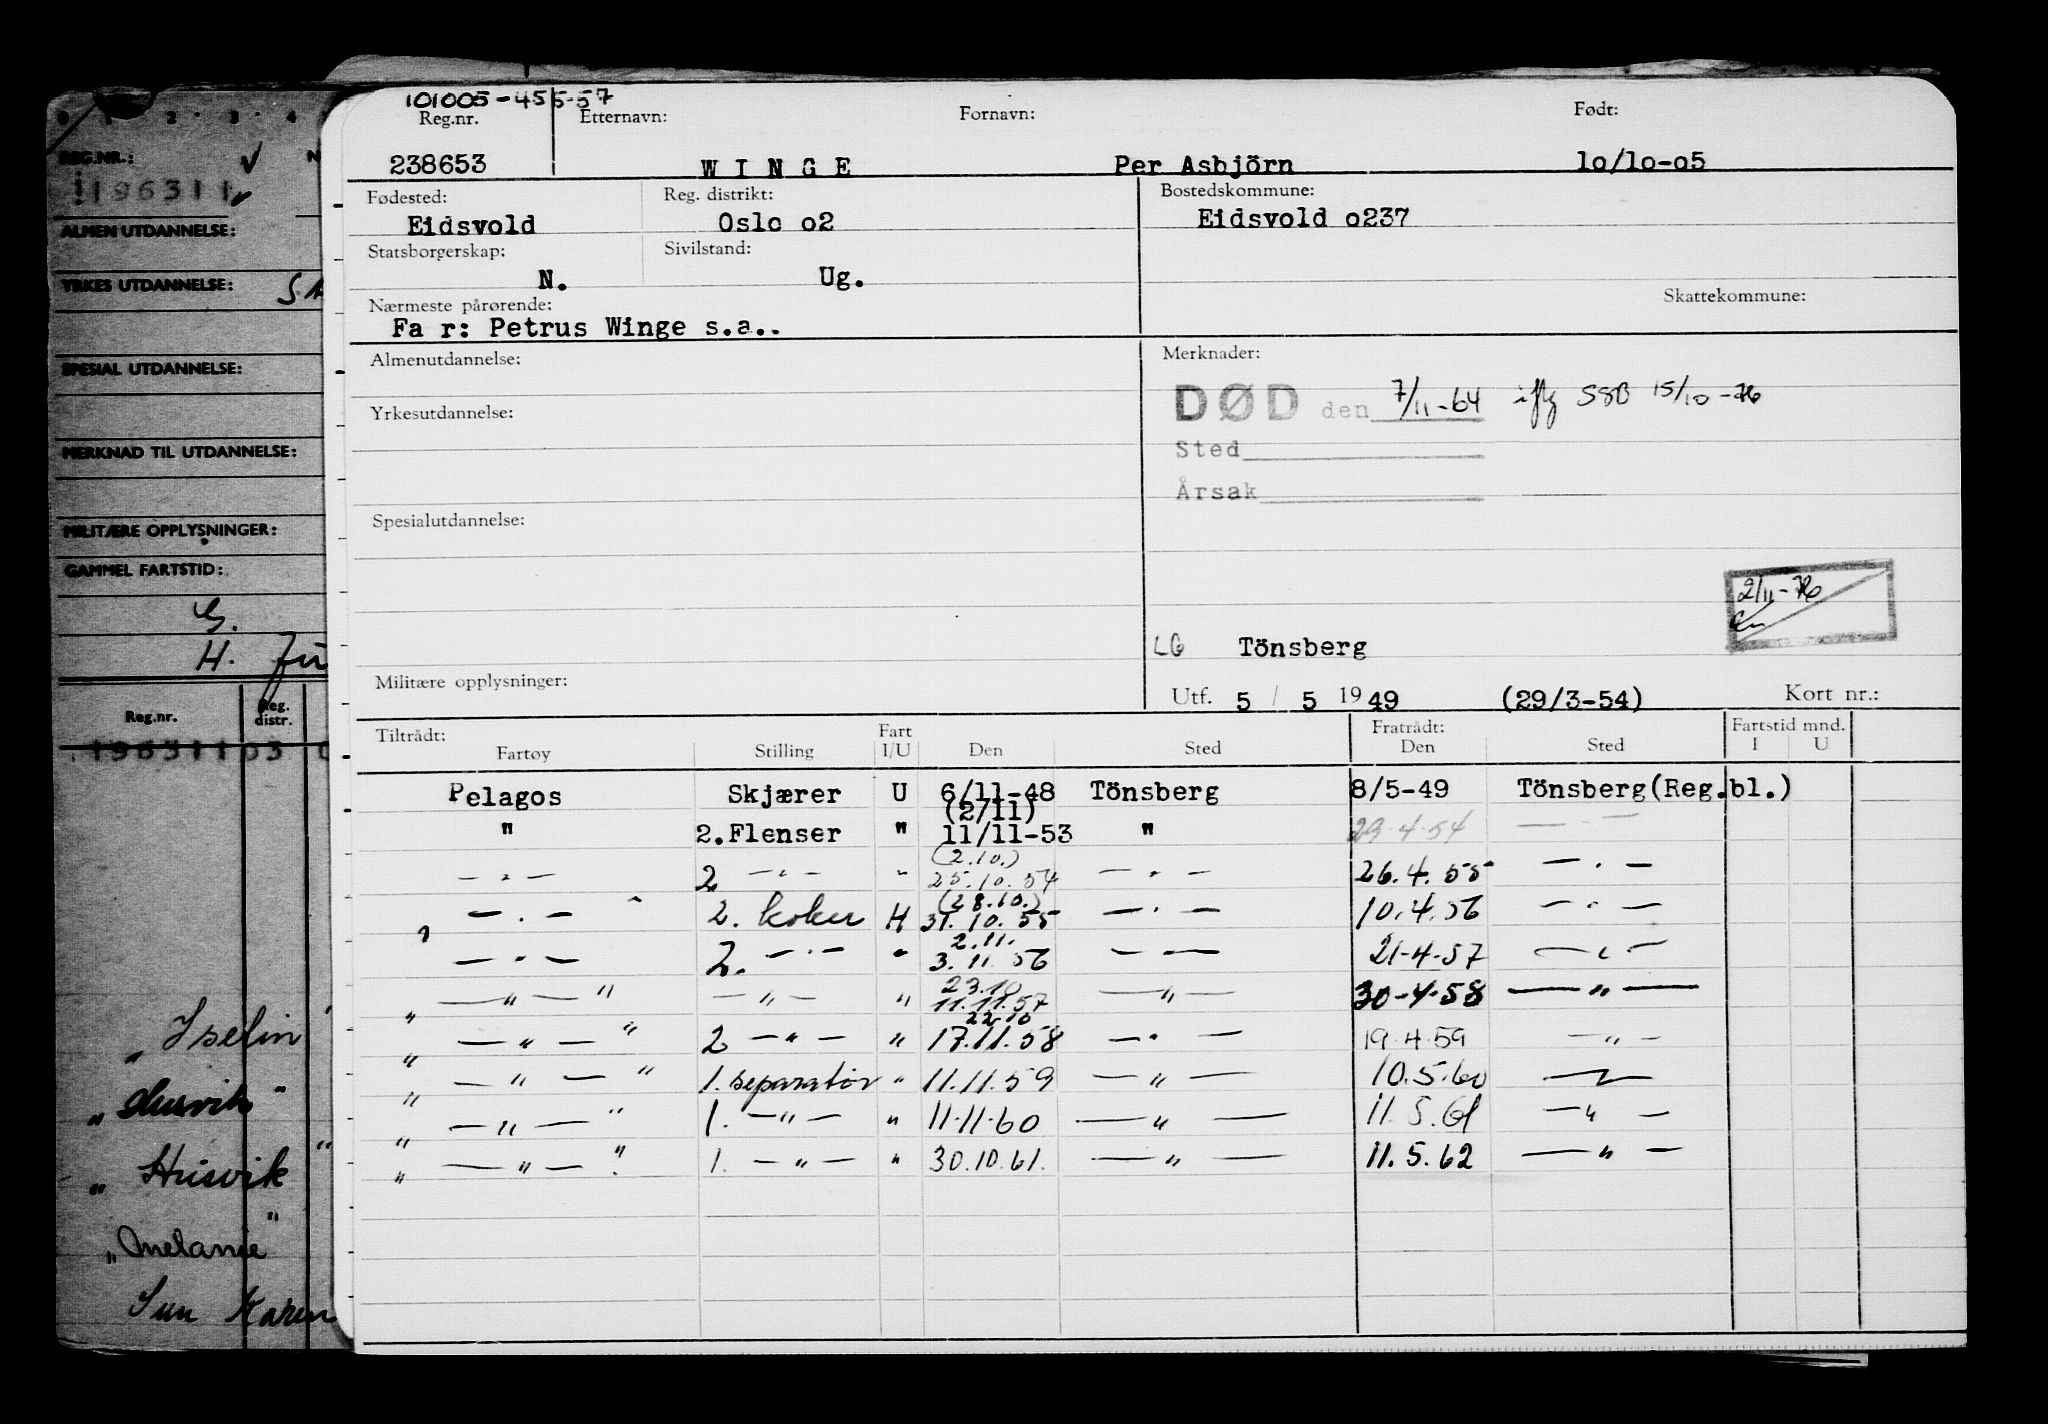 101005-45557
Reg.nr. Etternavn: Fornavn: Født:
238653 WINGE Per Asbjörn lo/lo-o5
Fødested: Reg. distrikt: Bostedskommune:
Eidsvold Oslo o2 Eidsvold o237
Statsborgerskap: Sivilstand:
N. Ug.
Nærmeste pårørende: Skattekommune:
Fa r: Petrus Winge s.a..
Almenutdannelse: Merknader:
DØD den 7/11-64 iflg SSB 15/10-76
Yrkesutdannelse:
Sted
Årsak
Spesialutdannelse:
2/11-76
LG Tönsberg
Militære opplysninger: Utf. 5 / 5 1949 (29/3-54) Kort nr.:
Tiltrådt: Fart Fratrådt: Fartstid mnd.
Fartøy Stilling I/U Den Sted Den Sted I U
Pelagos Skjærer U 6/11-48 Tönsberg 8/5-49 Tönsberg(Reg.bl.)
(2/11)
" 2.Flenser " 11/11-53 " 29.4.54 — " —
(2.10.)
— " — 2 — " — " 25.10.54 — " — 26.4.55 — " —
(28.10.)
— " — 2. koker H 31.10.55 — " — 10.4.56 — " —
2.11.
— " — 2. — " — " 3.11.56 — — 21-4-57 — " —
23.10
" — " — " — " — " 11.11.57 — " — 30-4-58 — " —
22.10
" — " — " 2 — " — " 17.11.58 — " — 19.4.59 — " —
" — " — " 1. separatør " 11.11.59 — " — 10.5.60 — " —
" — " — " 1. — " — " 11.11.60 — " — 11.5.61 — " —
" — " — " 1. — " — " 30.10.61. — " — 11.5.62 — " —
0 1 2 3 4
REG.NR.: N
196311
ALMEN UTDANNELSE:
YRKES UTDANNELSE:
SPESIAL UTDANNELSE:
MERKNAD TIL UTDANNELSE:
MILITÆRE OPPLYSNINGER:
GAMMEL FARTSTID:
G.
H.
Reg.nr. Reg. distr.
196311 03
„ Iselin "
„ Husvik "
„ Husvik "
„ Melanie "
Sun Karen